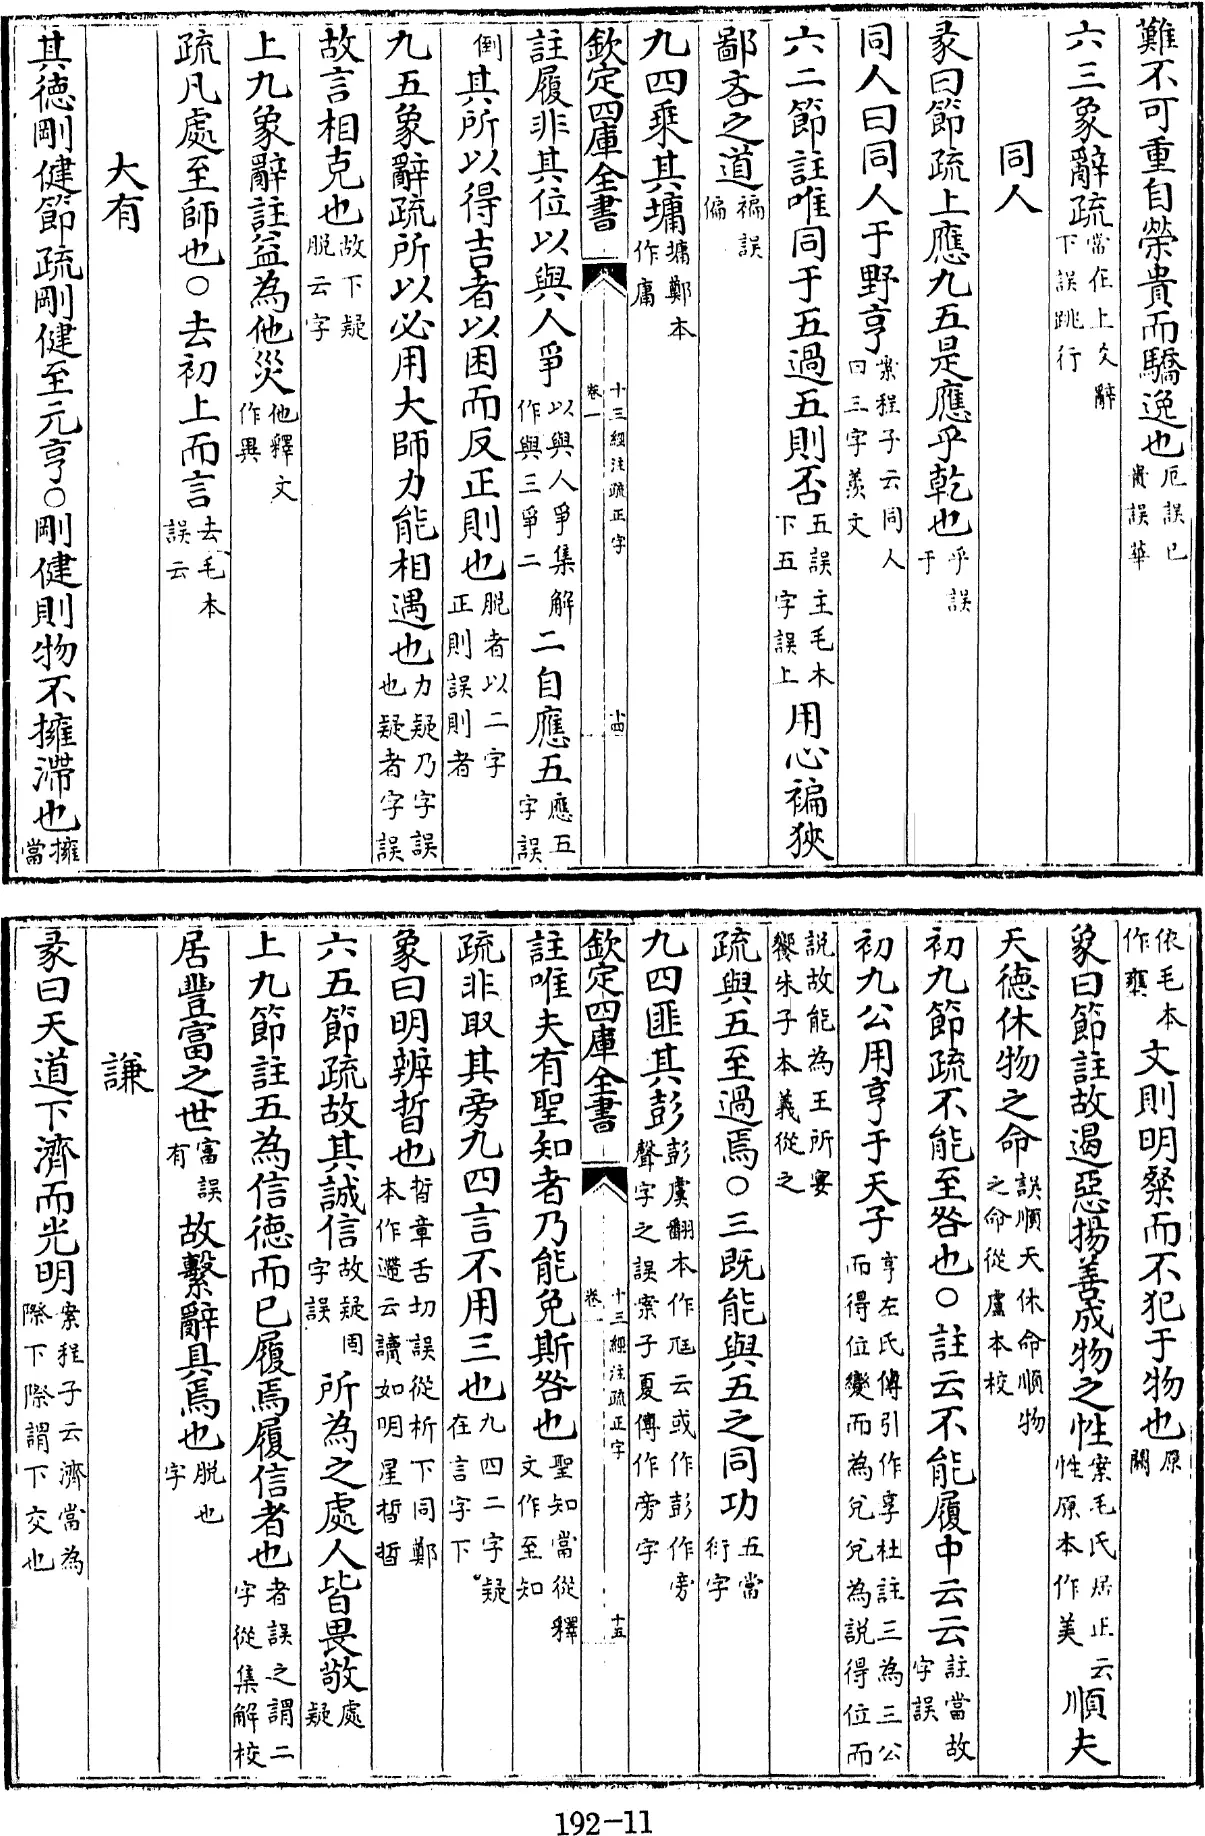 難不可重自榮貴而驕逸也厄誤已貴誤華
六三象辭疏當在上爻辭下誤跳行
同人
彖曰節疏上應九五是應乎乾也乎誤于
同人曰同人于野亨案程子云同人曰三字羨文
六二節註唯同于五過五則否五誤主毛本下五字誤上用心褊狹
鄙吝之道褊誤偏
九四乘其墉墉鄭本作庸
欽定四庫全書 卷一 十三經注疏正字 十四
註履非其位以與人爭以與人爭集解作與三爭二二自應五應五字誤
倒其所以得吉者以困而反正則也脫者以二字正則誤則者
九五象辭疏所以必用大師力能相遇也力疑乃字誤也疑者字誤
故言相克也故下疑脫云字
上九象辭註益為他災他釋文作異
疏凡處至師也○去初上而言去毛本誤云
大有
其德剛健節疏剛健至元亨○剛健則物不擁滯也擁當
依毛本作壅文則明粲而不犯于物也原闕
象曰節註故遏惡揚善成物之性案毛氏居正云性原本作美順夫
天德休物之命誤順天休命順物之命從盧本校
初九節疏不能至咎也○註云不能履中云云註當故字誤
初九公用亨于天子亨左氏傳引作享杜註三為三公而得位變而為兌兌為說得位而
說故能為王所宴饗朱子本義從之
疏與五至過焉○三既能與五之同功五當衍字
九四匪其彭彭虞翻本作尫云或作彭作旁聲字之誤案子夏傳作旁字
欽定四庫全書 卷一 十三經注疏正字 十五
註唯夫有聖知者乃能免斯咎也聖知當從釋文作至知
疏非取其旁九四言不用三也九四二字疑在言字下
象曰明辨晢也晢章舌切誤從析下同鄭本作遰云讀如明星晢晢
六五節疏故其誠信故疑因字誤所為之處人皆畏敬處疑
上九節註五為信德而已履焉履信者也者誤之謂二字從集解校
居豐富之世富誤有故繫辭具焉也脫也字
謙
彖曰天道下濟而光明案程子云濟當為際下際謂下交也
192-11